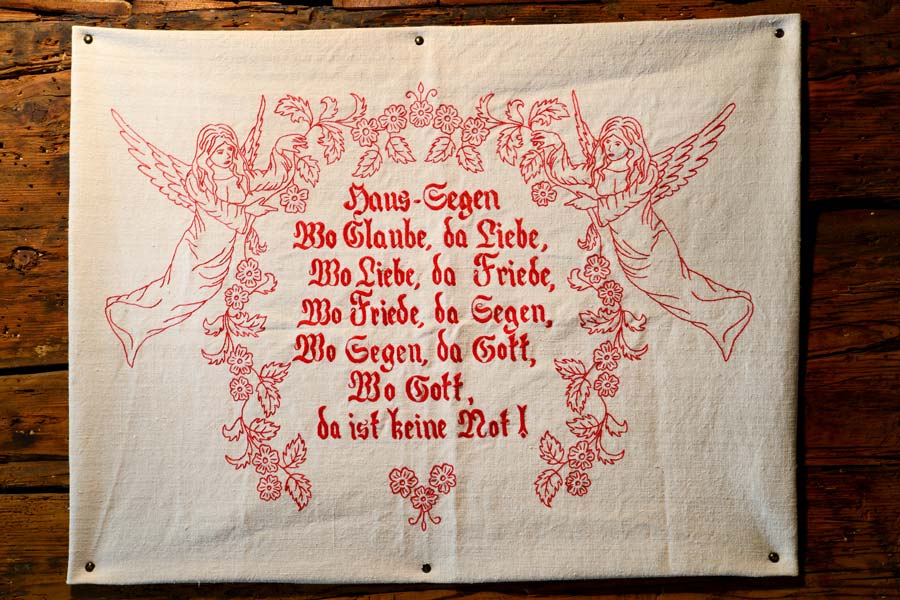 Haus-Segen
Wo Glaube, da Liebe,
Wo Liebe, da Friede,
Wo Friede, da Segen,
Wo Segen, da Gott,
Wo Gott,
da ist keine Not!